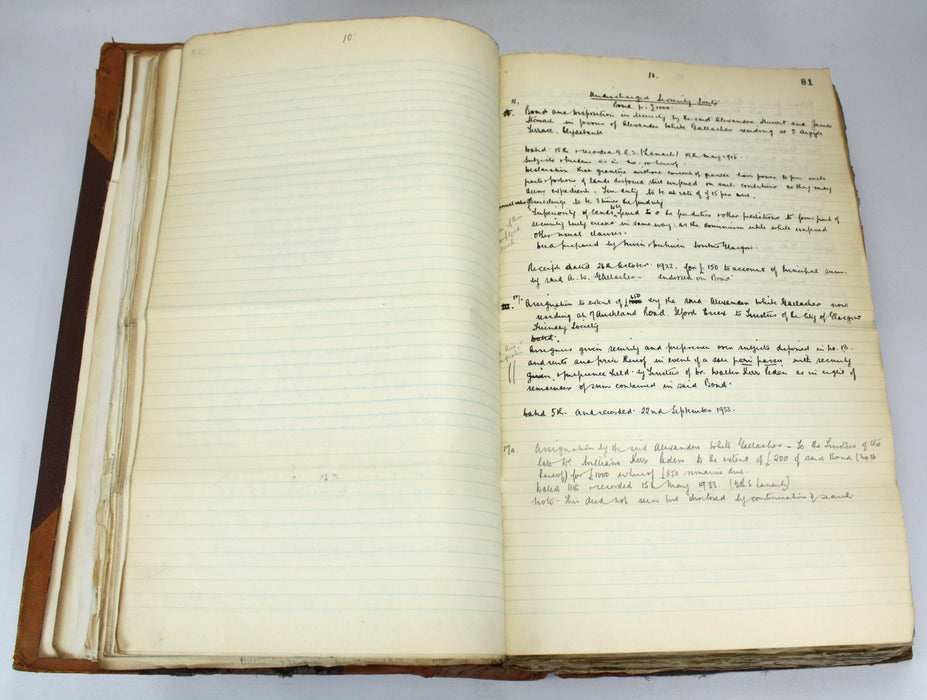 10.
11.
81
Undischarged Security Writs
Bond p. £1000
16. Bond and Disposition in Security by the said Alexander Stewart and James
Stewart in favour of Alexander White Gallacher residing at 5 Argyle
Terrace, Clydebank
Dated 15th & recorded G.R.S. (Lanark) 19th May 1915.
Subjects & burdens as in No. 10 hereof.
Declaration that granters without consent of grantee have power to feu
parts & portions of lands disponed still unfeued on such conditions as they may
deem expedient. Feu duty to be at rate of £15 per acre.
buildings to be 3 times feu duty
Superiority of lands to be feued & feuduties & other prestations to form part of
security hereby created in same way as the dominium utile while unfeued
Other usual clauses.
Deed prepared by Glasgow.
Receipt dated 26th October 1922 for £150 to account of Principal sum
by said A. W. Gallacher. endorsed on Bond
17. Assignation to extent of £650 by the said Alexander White Gallacher now
residing at 7 Auckland Road Ilford Essex to Trustees of the City of Glasgow
Friendly Society
Dated.
Assignees given security and preference over subjects disponed in No. 16.
and rents and price thereof in event of a sale pari passu with security
given & preference held by Trustees of Dr. Walter Kerr Peden as in right of
remainder of sum contained in said Bond.
Dated 5th and recorded 22nd September 1933.
17a. Assignation by the said Alexander White Gallacher – To the Trustees of the
late Dr. William Kerr Peden to the extent of £200 of said Bond (No 16
hereof) for £1000 whereof £850 remains due.
Dated 11th & recorded 15th May 1933. (GRS Lanark)
Note – This deed not seen but disclosed by continuation of search